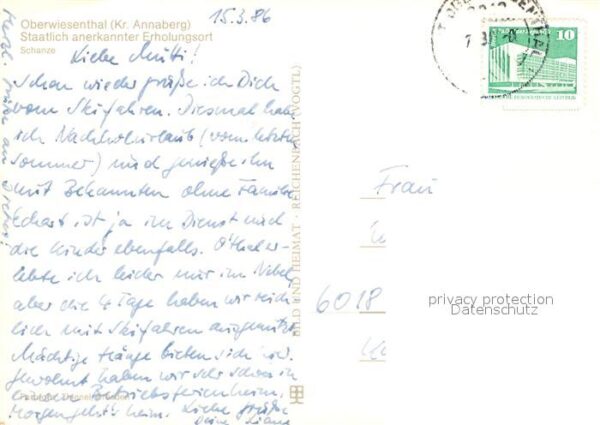 15.3.86
Oberwiesenthal (Kr. Annaberg)
Staatlich anerkannter Erholungsort
Schanze
Liebe Mutti!
Schon wieder grüße ich Dich
vom Skifahren. Diesmal habe
ich Nachholurlaub (vom letzten
Sommer) und genieße ihn
mit Bekannten ohne Familie
Eckart ist ja im Dienst und
die Kinder ebenfalls. O'thal er-
lebte ich leider nur im Nebel,
aber die 4 Tage haben wir reich-
lich mit Skifahren ausgenützt
Mächtige Hänge bieten sich
gewohnt haben wir sehr schön in
einem Betriebsferienheim.
Morgen geht's heim. Liebe Grüße
Deine
BILD UND HEIMAT · REICHENBACH (VOGTL)
10
Frau
6018
privacy protection
Datenschutz